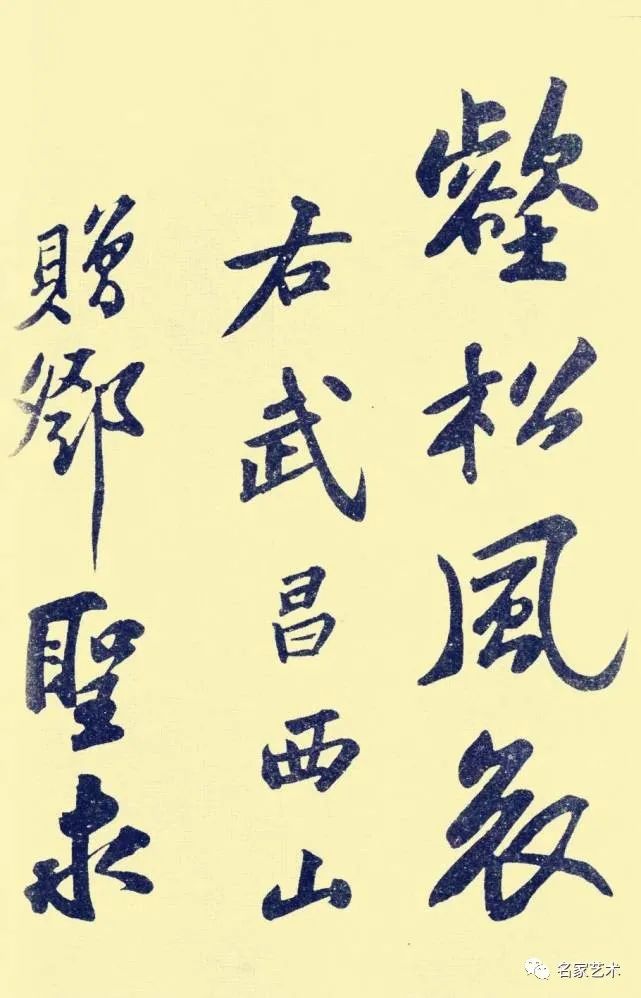 壑松風哀
右武昌西山
贈鄧聖求
名家艺术